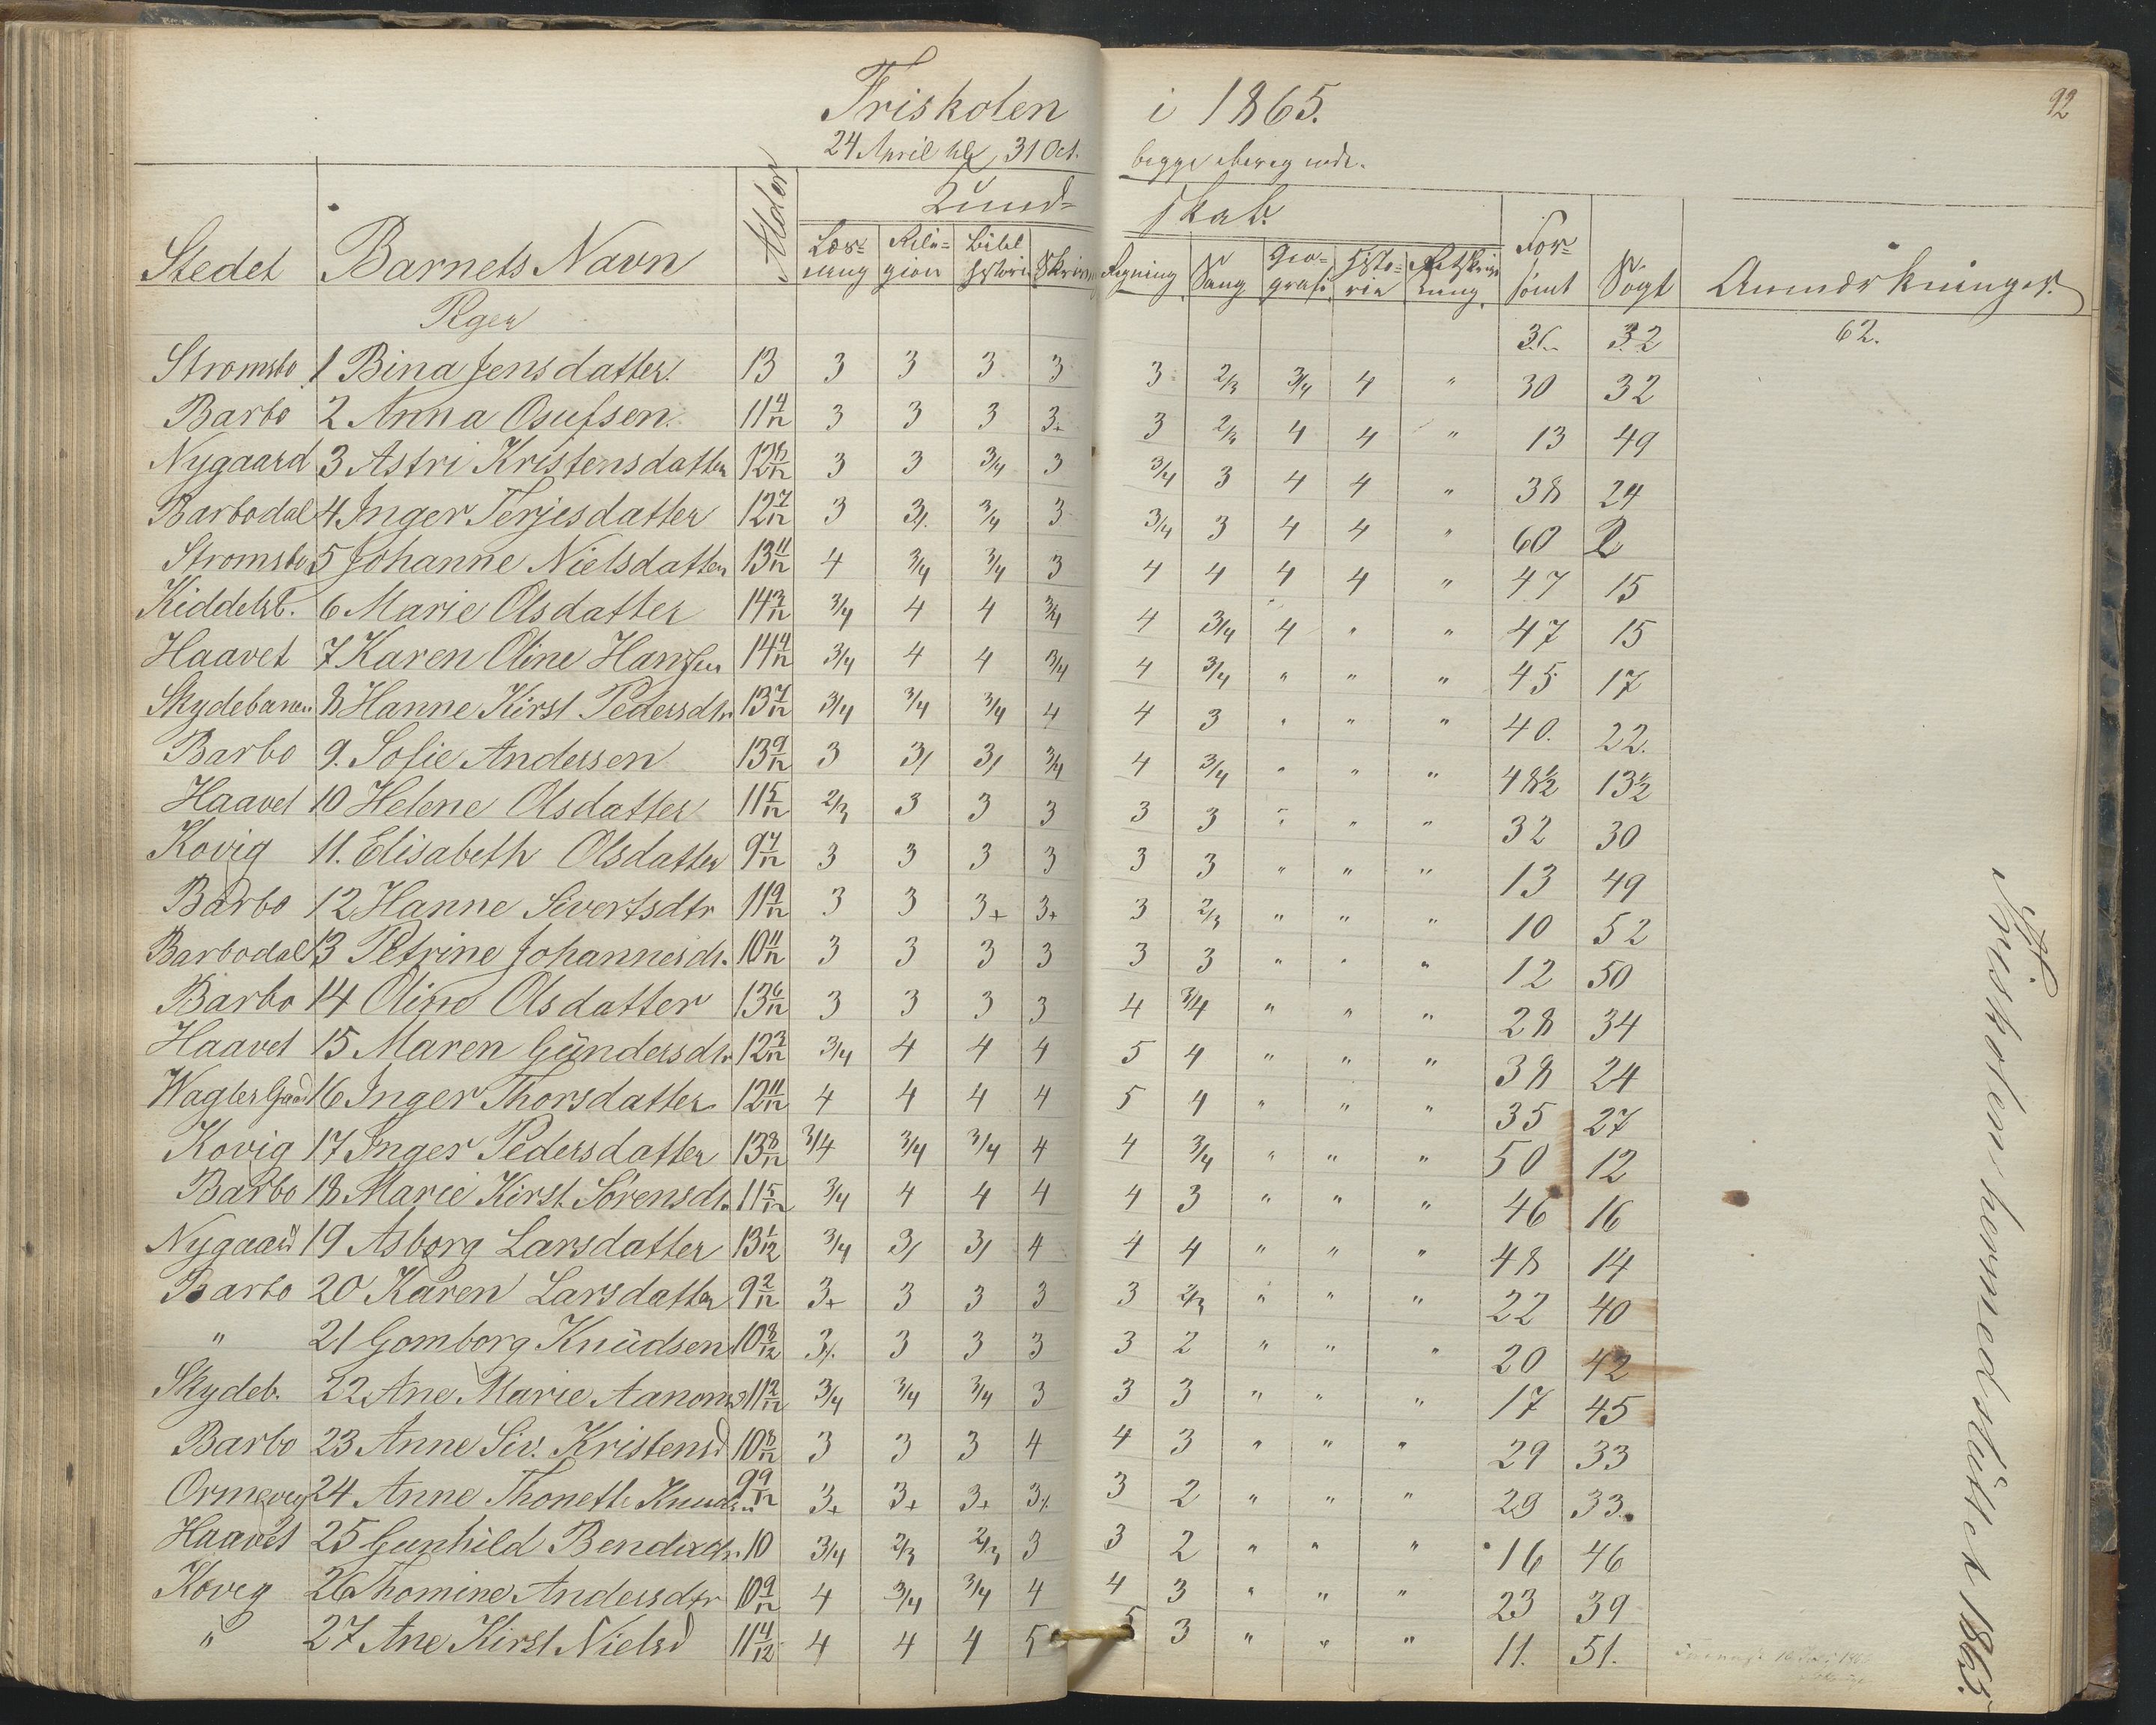 92
Friskolen i 1865.
24 April til 31 Oct. begge iberegnede.
Stedet Barnets Navn Alder Kund- skab. For- sömt Sögt Anmærkninger.
Læs- ning Reli- gion Bibel historie Skrivn Regning Sang Geo- grafi Histo- rie Retskriv- ning
Piger 32 62.
Stromsbo 1 Bina Jensdatter. 13 3 3 3 3 3 2/3 3/4 4 " 30 32
Barbo 2 Anna Osufsen. 11 4/12 3 3 3 3+ 3 2/3 4 4 " 13 49
Nygaard 3 Astri Kristensdatter 12 8/12 3 3 3/4 3 3/4 3 4 4 " 38 24
Barbodal 4 Inger Terjesdatter 12 7/12 3 3/. 3/4 3 3/4 3 4 4 " 60 2
Stromsbo 5 Johanne Nielsdatter 13 11/12 4 3/4 3/4 3 4 4 4 4 " 47 15
Kiddelsb. 6 Marie Olsdatter 14 3/12 3/4 4 4 3/4 4 3/4 4 " " 47 15
Haavet 7 Karen Oline Hansen 14 4/12 3/4 4 4 3/4 4 3/4 " " " 45 17
Skydebanen 8 Hanne Kirst Pedersdtr 13 7/12 3/4 3/4 3/4 4 4 3 " " " 40. 22.
Barbo 9. Sofie Andersen 13 9/12 3 3/ 3/ 3/4 4 3/4 " " " 48½ 13½
Haavet 10 Helene Olsdatter 11 5/12 2/3 3 3 3 3 3 " " " 32 30
Kovig 11. Elisabeth Olsdatter 9 7/12 3 3 3 3 3 3 " " " 13 49
Barbo 12 Hanne Sivertsdtr 11 9/12 3 3 3+ 3+ 3 2/3 " " " 10 52
Barbodal 13 Petrine Johannesdr. 10 11/12 3 3 3 3 3 3 " " " 12 50
Barbo 14 Oline Olsdatter 13 6/12 3 3 3 3 4 3/4 " " " 28 34
Haavet 15 Maren Gündersdtr 12 3/12 3/4 4 4 4 5 4 " " " 38 24
Wagles Gaard 16 Inger Thorsdatter 12 11/12 4 4 4 4 5 4 " " " 35 27
Kovig 17 Inger Pedersdatter 13 8/12 3/4 3/4 3/4 4 4 3/4 " " " 50 12
Barbo 18 Marie Kirst. Sörensdr. 11 5/12 3/4 4 4 4 4 3 " " " 46 16
Nygaard 19 Asborg Larsdatter 13 1/12 3/4 3/ 3/ 4 4 4 " " " 48 14
Barbo 20 Karen Larsdatter 9 2/12 3+ 3 3 3 3 2/3 " " " 22 40
" 21 Gomborg Knüdsen 10 8/12 3/. 3 3 3 3 2 " " " 20 42
Skydeb. 22 Ane Marie Aanons 11 2/12 3/4 3/4 3/4 3 3 3 " " " 17 45
Barbo 23 Anne Siv. Kristensd 10 8/12 3 3 3 4 4 3 " " " 29 33
24 Anne Thonette Knuds 9 9/12 3+ 3+ 3+ 3/. 3 2 " " " 29 33.
Haavet 25 Gunhild Bendixdr. 10 3/4 2/3 2/3 3 3 2 " " " 16 46
Koveg 26 Thomine Andersdtr 10 9/12 4 3/4 3/4 4 4 3 " " " 23 39
" 27 Ane Kirst Nielsd 11 4/12 4 4 4 5 5 3 " " " 11. 51.
Ntf. Friskolen hermed sluttet 1865.